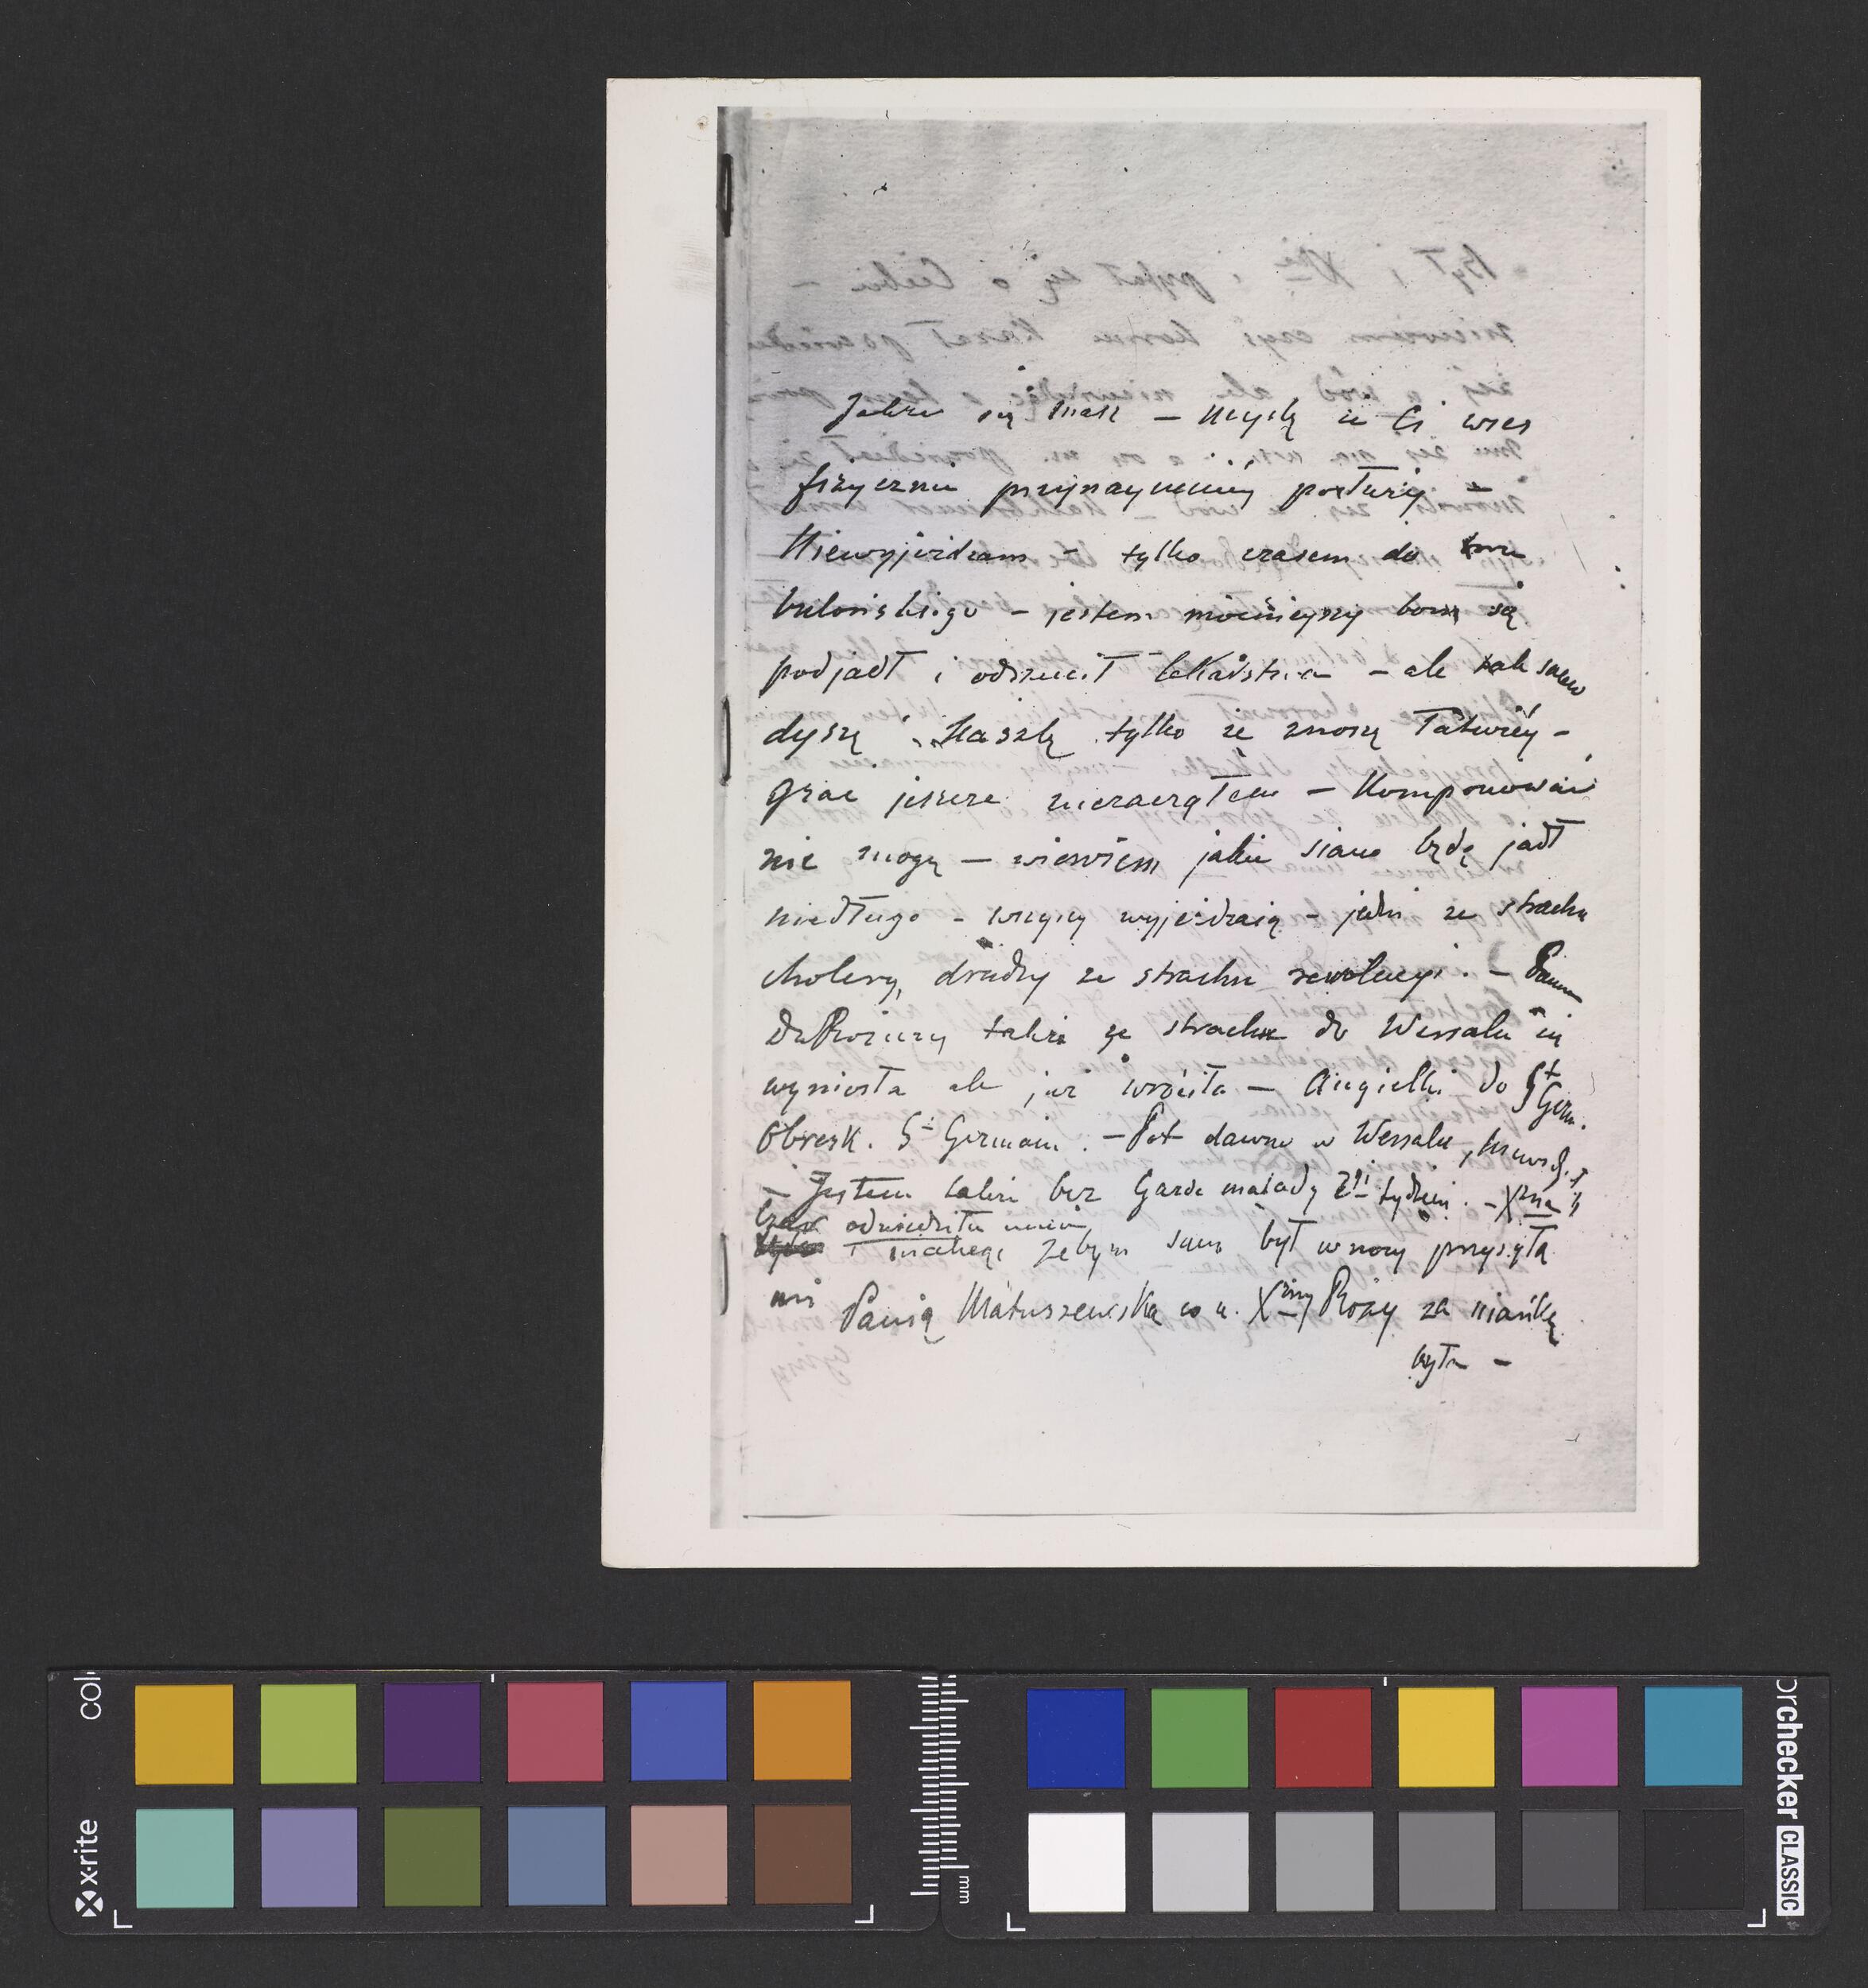 Jakże się masz – Myślę że Ci wieś
fizycznie przynaymniéj posłuży –
Niewyjeżdżam – tylko czasem do
bulońskiego – jestem mocnieyszy bom się
podjadł i odrzucił lekarstwa – ale tak samo
dyszę i kaszlę tylko że znoszę łatwiéj –
Grać jeszcze niezacząłem – Komponować
nie mogę – niewiem jakie siano będę jadł
niedługo – wszyscy wyjeżdżaią – jedni ze strachu
cholery, drudzy ze strachu rewolucyi. – Panna
De Rozieres także ze strachu do Wersalu się
wyniosła ale już wróciła – Angielki do St Germ.
Obresk. St Germain. – Pot dawno w Wersalu,
– Jestem także bez Garde malady 2gi tydzień. – Xżna
Czar odwiedziła mnie
i niechcąc żebym sam był w nocy przysyła
mi Panią Matuszewską co u Xżny Rózy za niańkę
była –
co
x·rite
mm
orchecker CLASSIC